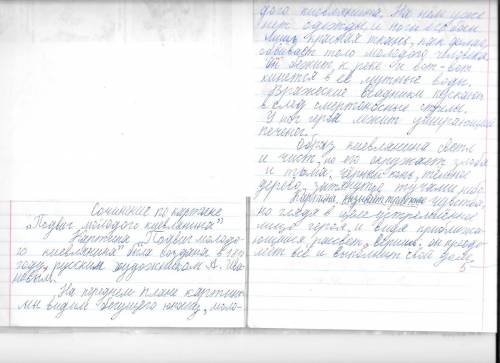 Сочинение по картине
„Подвиг молодого киевлянина"
Картина „Подвиг молодо-
го киевлянина" была создана в 181
году, русским художником А. Ива-
новым.
На переднем плане картины
мы видим бегущего юношу, моло-
дого киевлянина. На нем уже
нет одежды и ноги его босы
Лишь красная ткань, как
обвивает тело молодого человека.
бежит к реке. И вот-вот
кинется в её мутные воды.
Вражеские всадники пускают
в след смертоносные стрелы.
У ног героя лежит умирающий
печенег.
Образ киевлянина светл
и чист, но его окружает злоба
и тьма. чёрный конь, темное
дерево, затянутое тучами небо.
Картина чувства,
но глядя в целеустремлённое
лицо героя и видя приближа-
ющийся рассвет, веришь, он преодо-
леет все и выполнит свой долг.
5